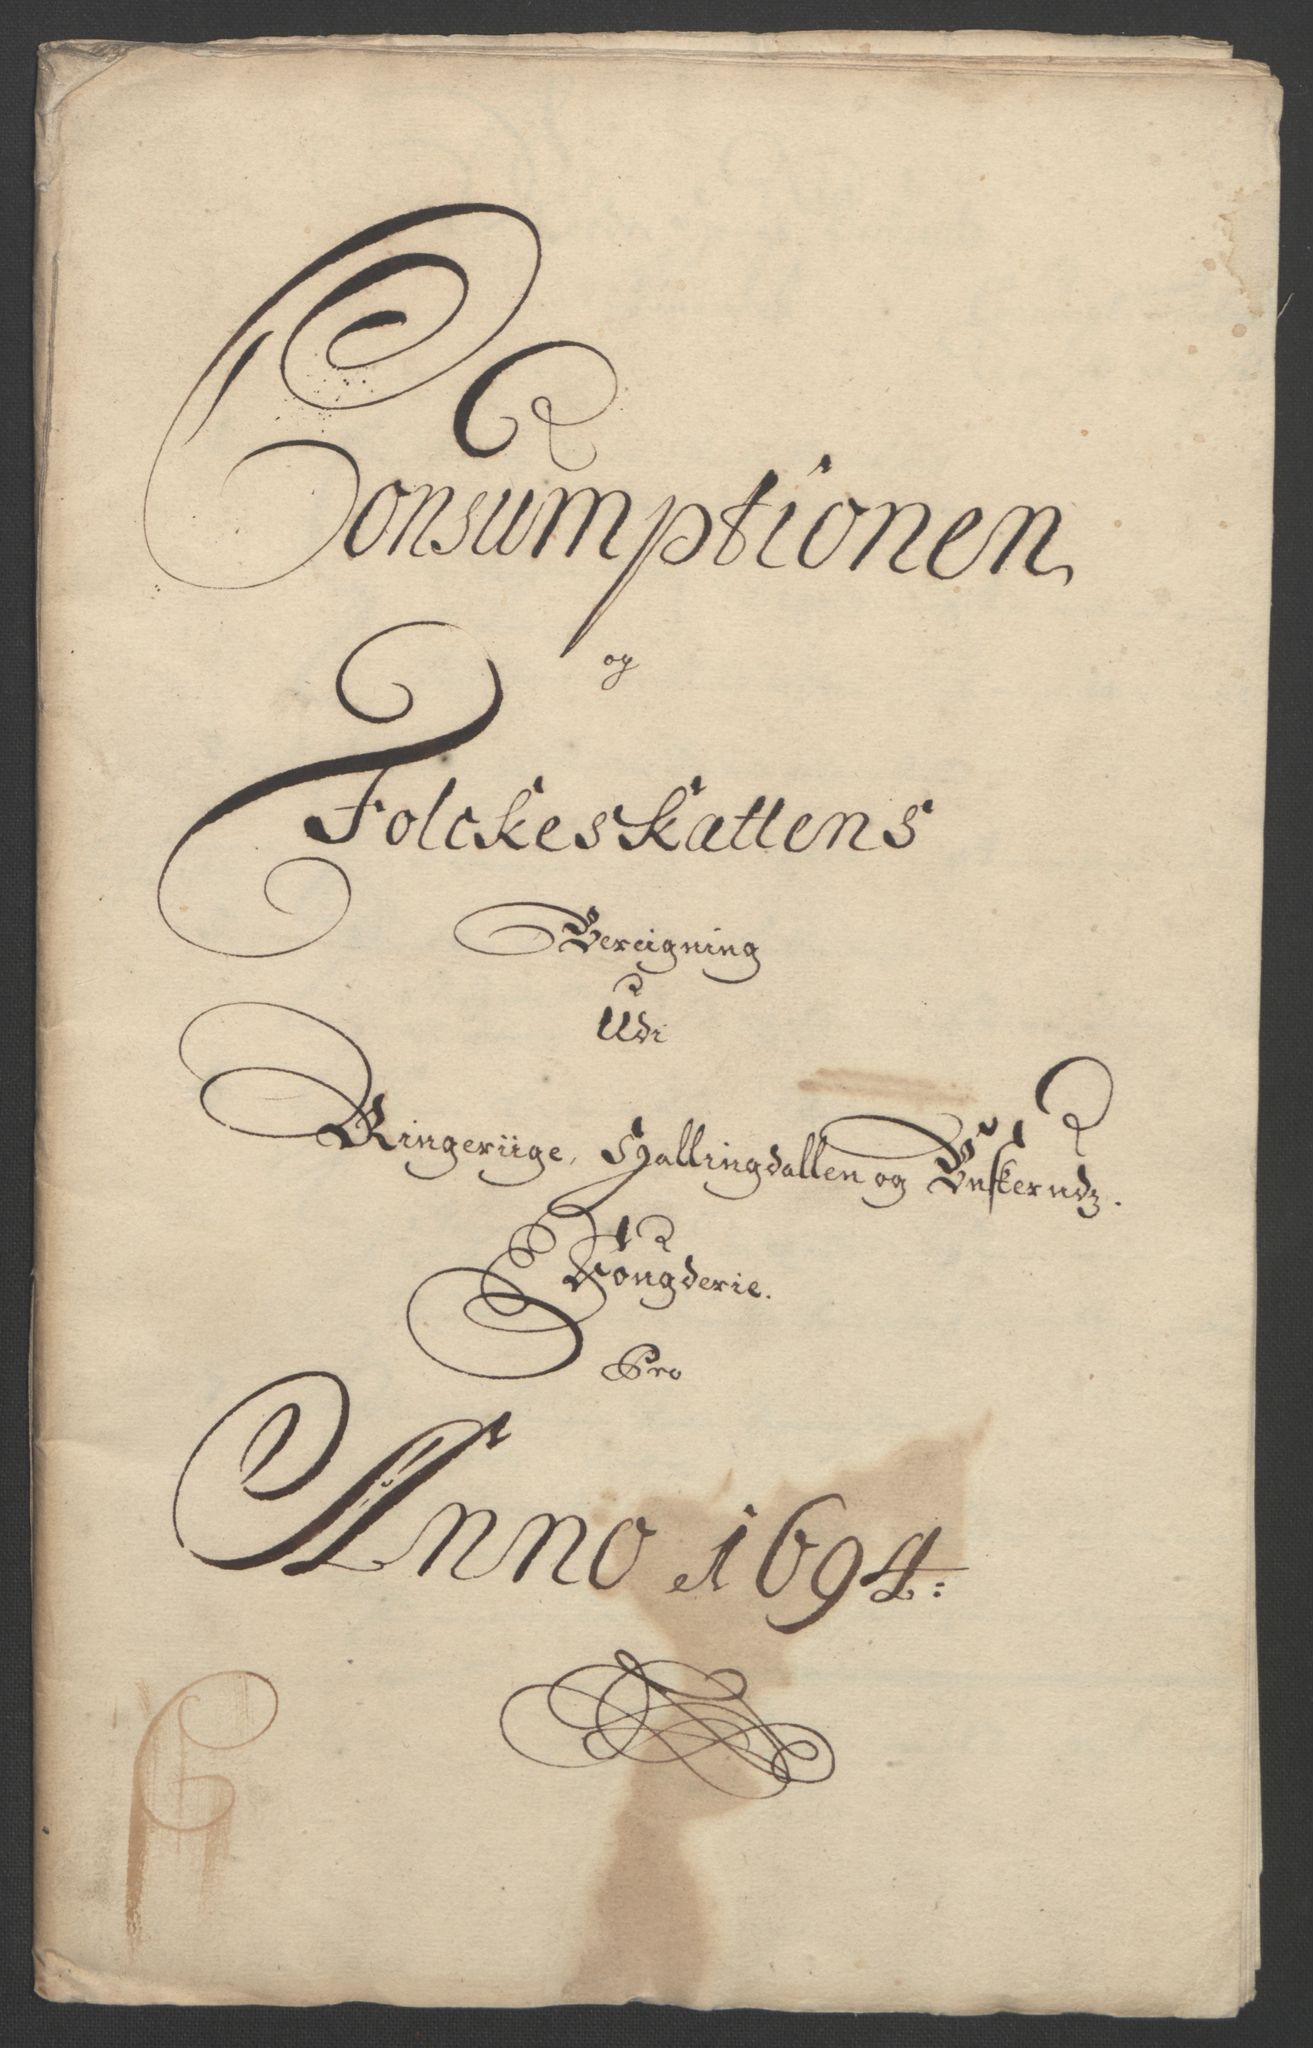 Consumptionen
og
Folckeskattens
Bereigning
Udi
Ringeriige, Hallingdallen og Buskerudz.
Fougderie.
Pro
Anno 1694: